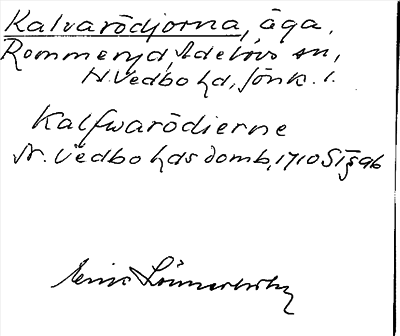 Kalvarödjorna, äga,
Rommeryd, Adelövs sn,
N. Vedbo hd, Jönk. l.
Kalfwarödierne
N. Vedbo hds domb, 1710 ST § 96